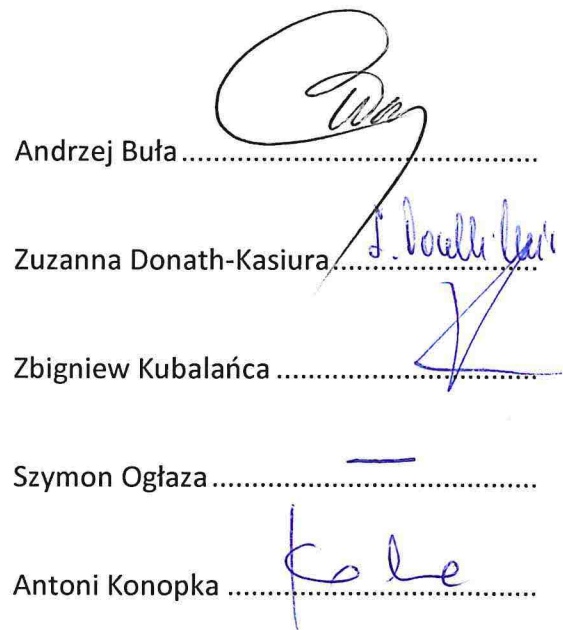 Andrzej Buła..........................................
Zuzanna Donath-Kasiura..........................
Zbigniew Kubalańca ................................
Szymon Ogłaza........................................
Antoni Konopka ......................................